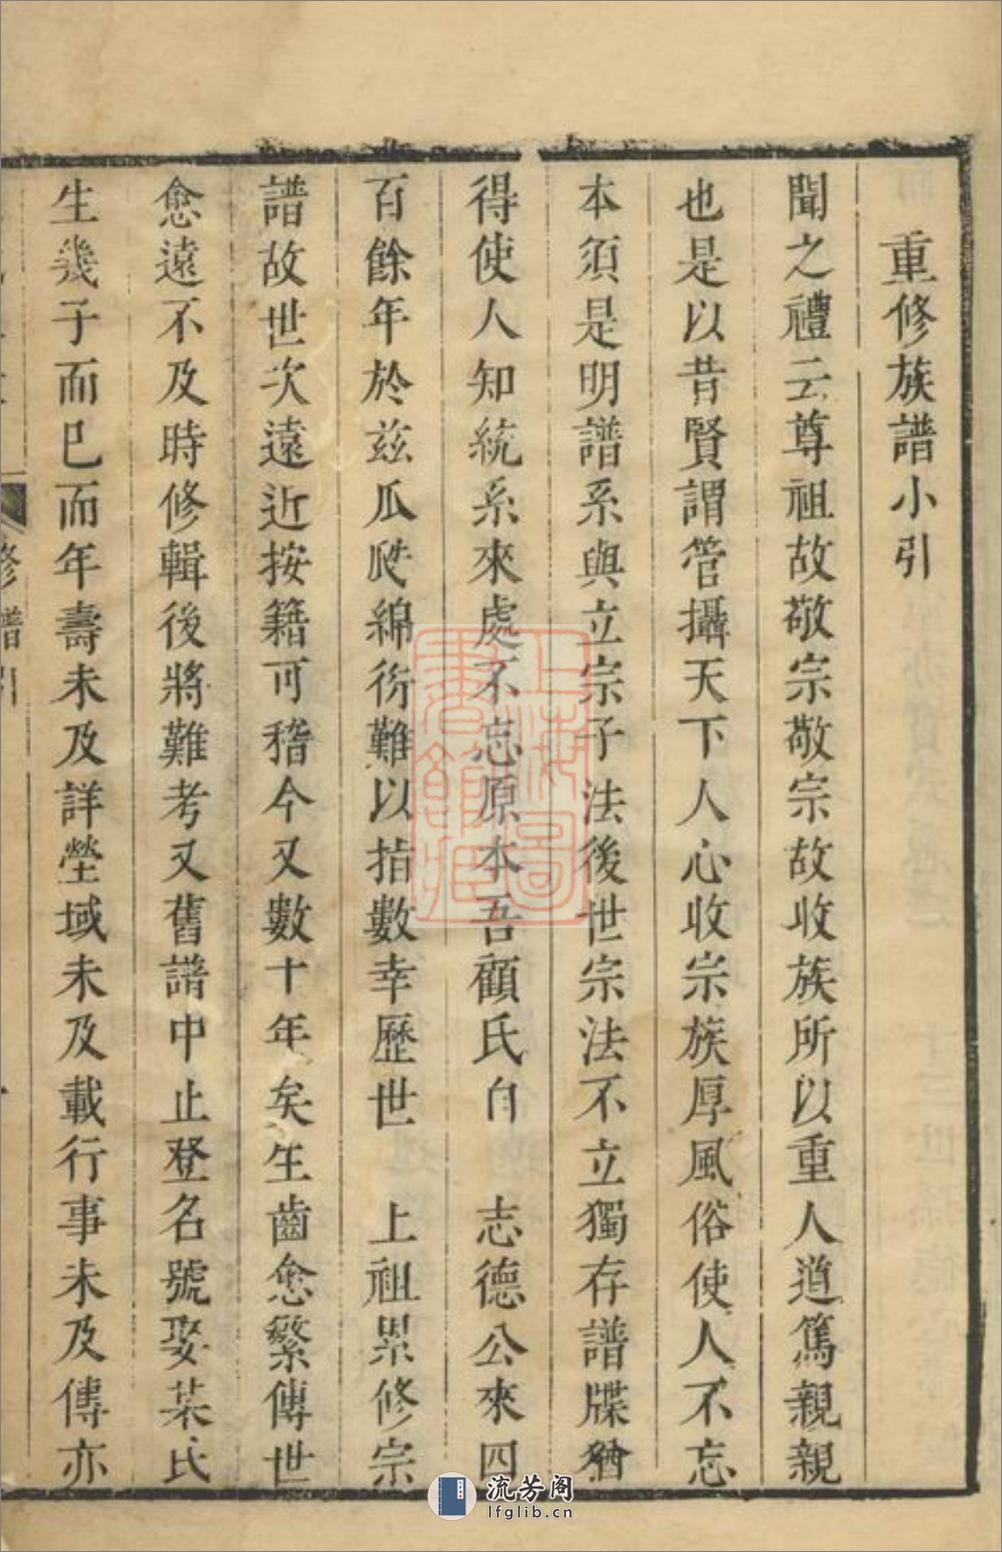 重修族譜小引
聞之禮云尊祖故敬宗敬宗故收族所以重人道篤親親
也是以昔賢謂管攝天下人心收宗族厚風俗使人不忘
本須是明譜系與立宗子法後世宗法不立獨存譜牒猶
得使人知統系來處不忘原本吾顧氏自 志德公來四
百餘年於茲瓜瓞綿衍難以指數幸歷世 上祖累修宗
譜故世次遠近按籍可稽今又數十年矣生齒愈繁傳世
愈遠不及時修輯後將難考又舊譜中止登名號娶某氏
生幾子而巳而年壽未及詳塋域未及載行事未及傳亦
修譜引
上海圖書館藏
流芳阁
lfglib.cn